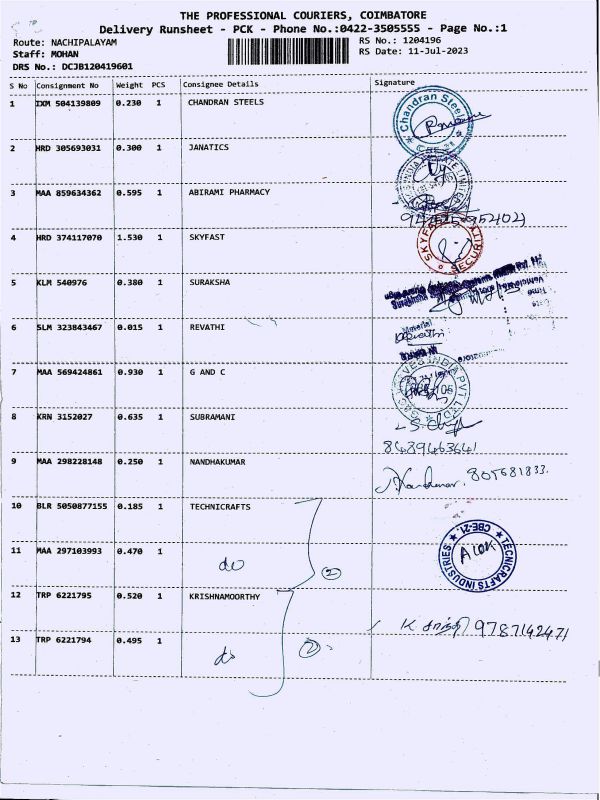 THE PROFESSIONAL COURIERS, COIMBATORE
Delivery Runsheet - PCK - Phone No.:0422-3505555 - Page No.:1
Route: NACHIPALAYAM
RS No.: 1204196
Staff: MOHAN
RS Date: 11-Jul-2023
DRS No.: DCJB120419601
S No Consignment No Weight PCS Consignee Details Signature
1 IXM 504139809 0.230 1 CHANDRAN STEELS
Chandran Steels
CBE-21
2 HRD 305693031 0.300 1 JANATICS
3 MAA 859634362 0.595 1 ABIRAMI PHARMACY
4 HRD 374117070 1.530 1 SKYFAST
SECURITY
5 KLM 540976 0.380 1 SURAKSHA
6 SLM 323843467 0.015 1 REVATHI
Material
Revathi
7 MAA 569424861 0.930 1 G AND C
INDIA PVT LTD
8 KRN 3152027 0.635 1 SUBRAMANI
8489463641
9 MAA 298228148 0.250 1 NANDHAKUMAR
Nandhakumar. 805681833.
10 BLR 5050877155 0.185 1 TECHNICRAFTS
TECNICRAFTS INDUSTRIES
CBE-21.
ALOK
11 MAA 297103993 0.470 1
do
2
12 TRP 6221795 0.520 1 KRISHNAMOORTHY
K சாந்தி 9787142471
13 TRP 6221794 0.495 1
do
2